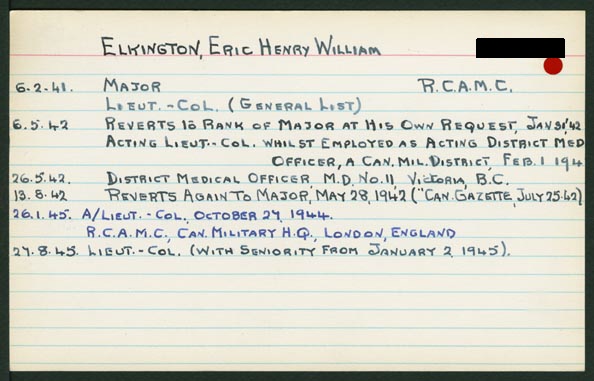 ELKINGTON, ERIC HENRY WILLIAM
6-2-41. MAJOR R.C.A.M.C.
LIEUT.-COL. (GENERAL LIST)
6.5.42 REVERTS TO RANK OF MAJOR AT HIS OWN REQUEST, JAN 31/42
ACTING LIEUT.-COL. WHILST EMPLOYED AS ACTING DISTRICT MED
OFFICER, A CAN. MIL. DISTRICT, FEB. 1 194
26.5.42. DISTRICT MEDICAL OFFICER M.D. NO. 11 VICTORIA, B.C.
13.8.42 REVERTS AGAIN TO MAJOR, MAY 28, 1942 ("CAN. GAZETTE, JULY 25-42)
26.1.45. A/LIEUT.-COL., OCTOBER 27, 1944.
R.C.A.M.C., CAN. MILITARY H.Q., LONDON, ENGLAND
27.8.45. LIEUT.-COL. (WITH SENIORITY FROM JANUARY 2, 1945).